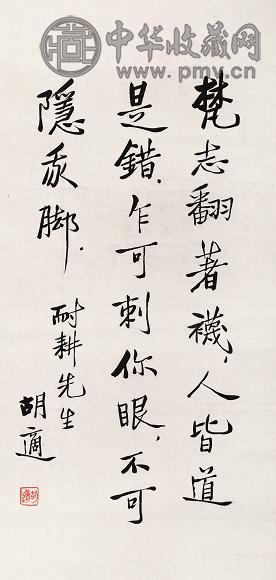 中华收藏网
www.pmy.cn
梵志翻著襪，人皆道
是錯．乍可刺你眼，不可
隱我脚．
耐耕先生
胡適